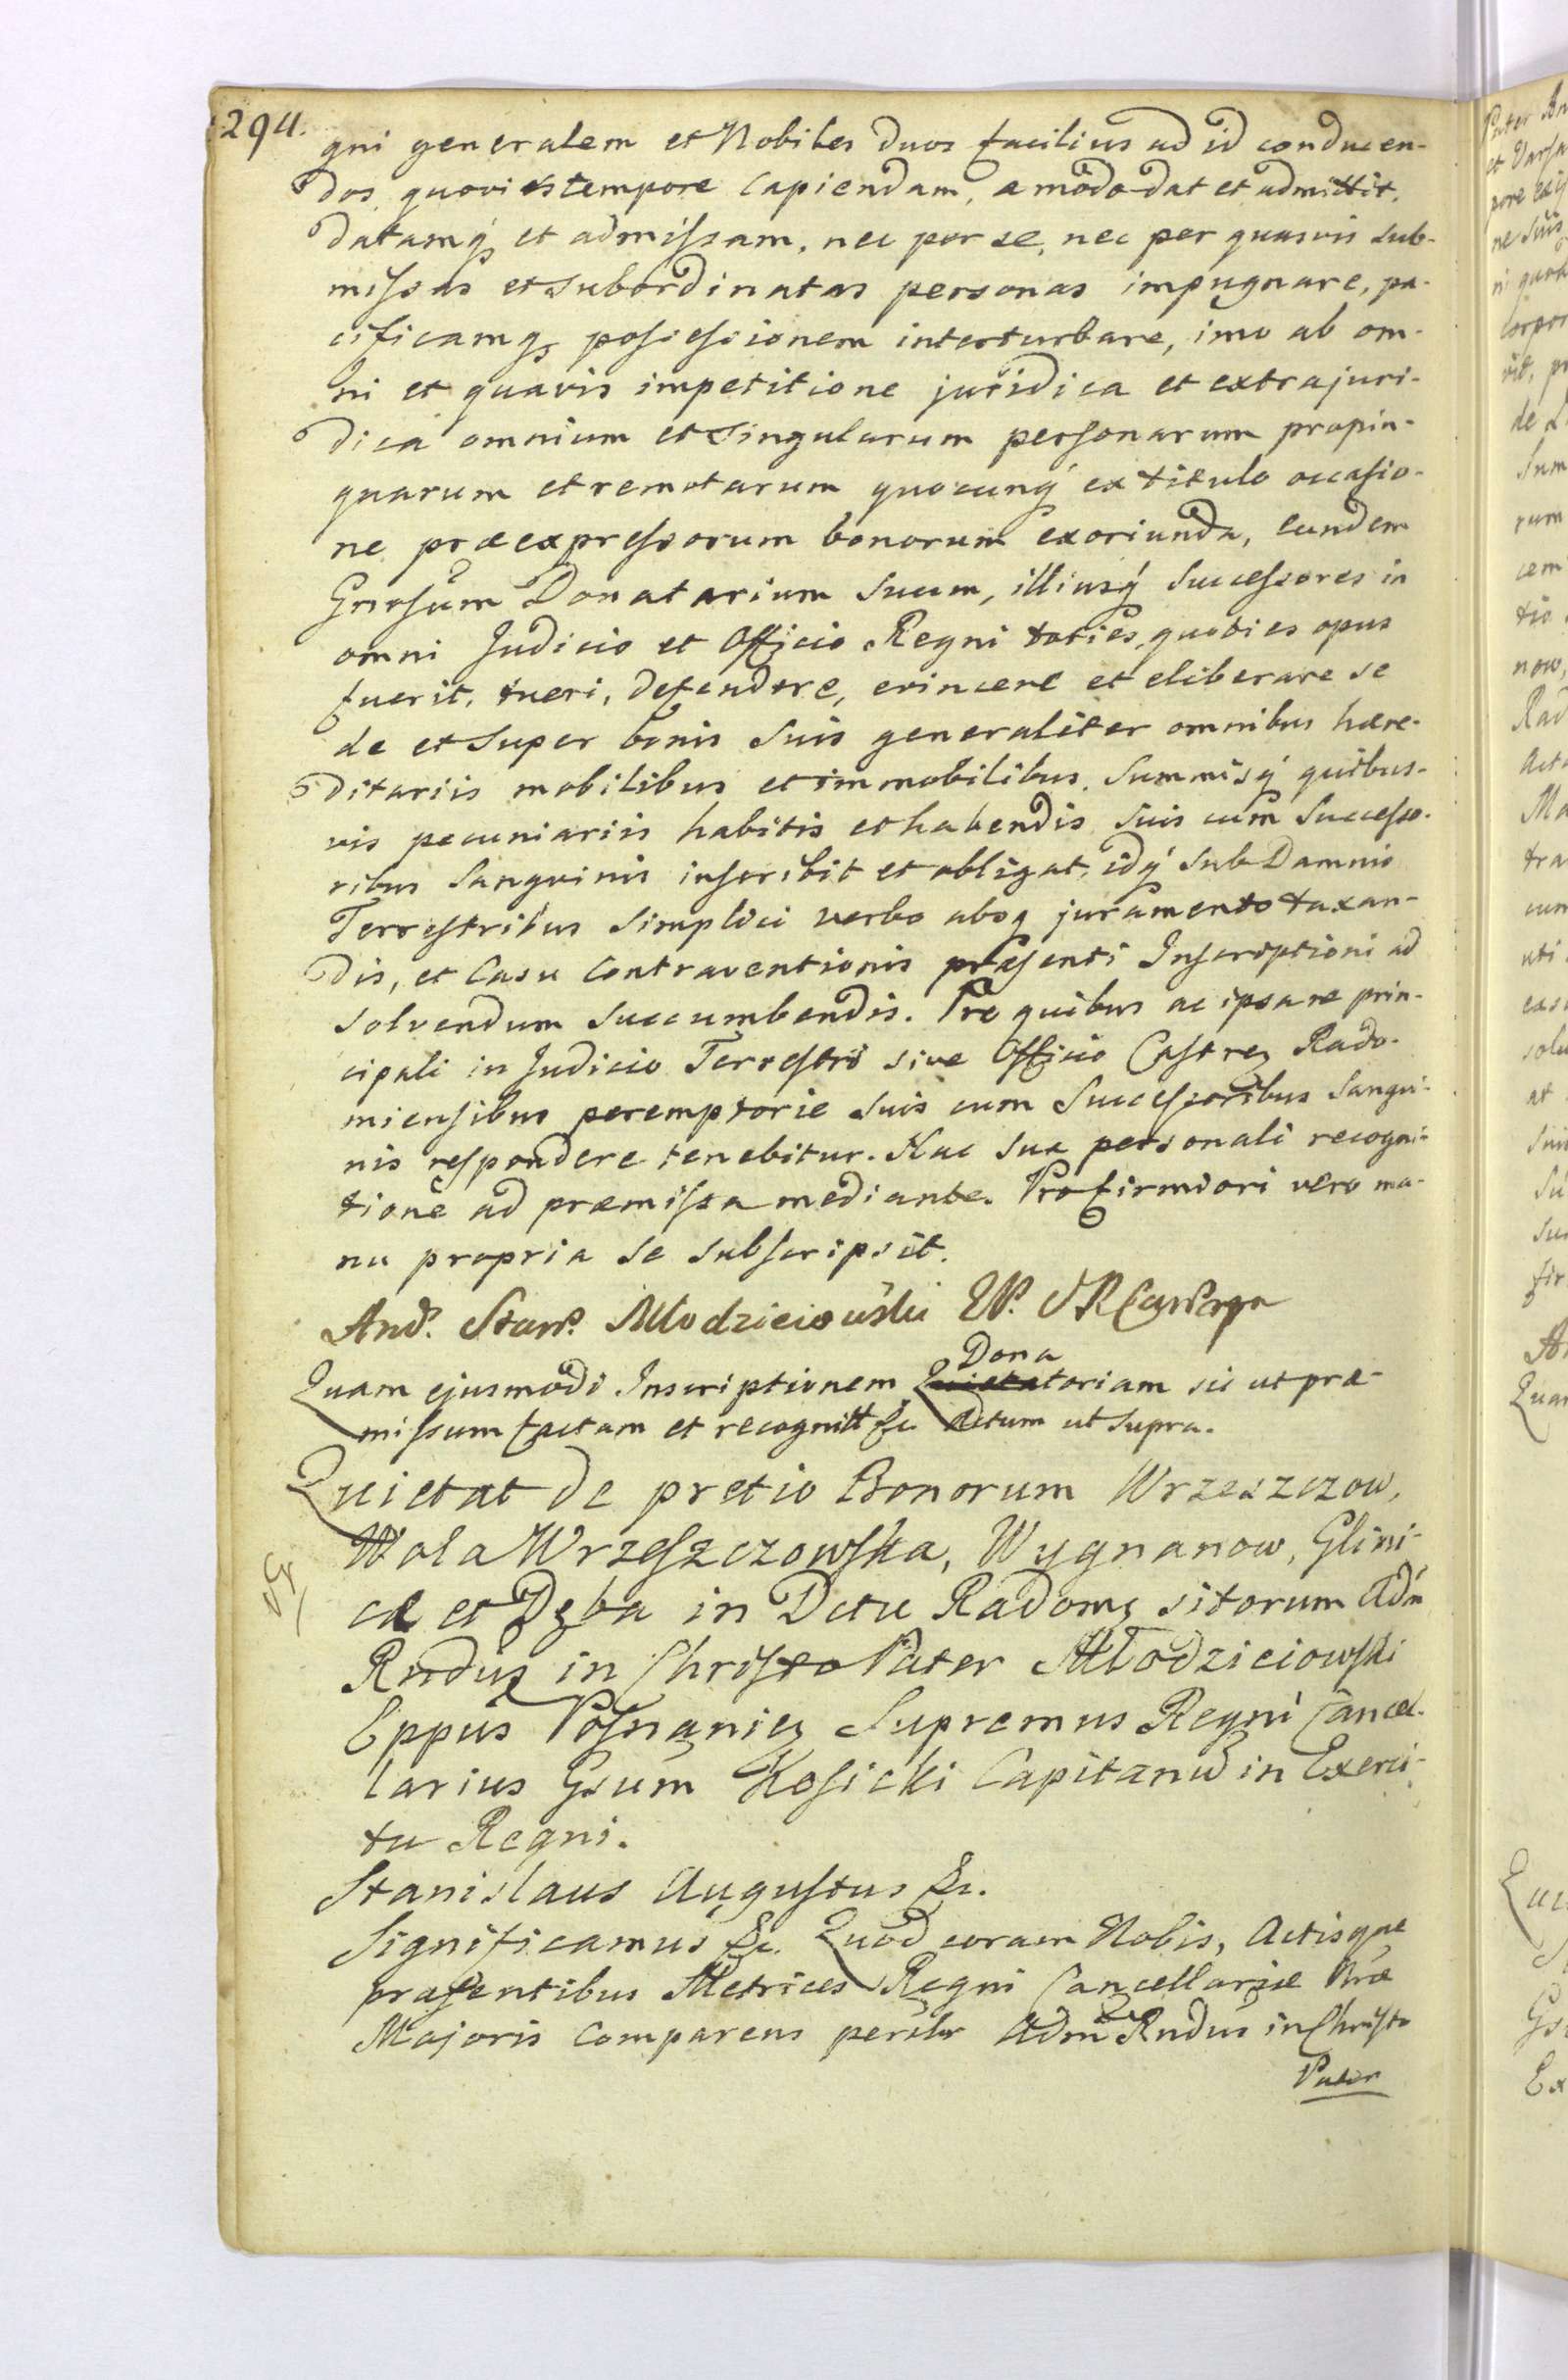 294.
gni generalem et Nobiles duos facilius ad id conducen-
dos quovis tempore capiendam, amodo dat et admittit,
datamq́ et admissam, nec per se, nec per quasvis sub-
missas et subordinatas personas impugnare, pa-
cificamq possessionem interturbare, imo ab om-
ni et quavis impetitione juridica et extrajuri-
dica omnium et singularum personarum propin-
quarum et remotarum quocunq́ ex titulo occasio-
ne præexpressorum bonorum exoriunda, eundem
Gnosum Donatarium suum, illiusq́ successores in
omni Judicio et Officio Regni toties, quoties opus
fuerit, tueri, defendere, evincere et eliberare se
de et super bonis suis generaliter omnibus hære-
ditariis mobilibus et immobilibus, Summisq́ quibus-
vis pecuniariis habitis et habendis suis cum Successo-
ribus Sanguinis inscribit et obligat, idq́ sub Damnis
Terrestribus simplici verbo absq juramento taxan-
dis, et Casu Contraventionis præsenti Inscriptioni ad
solvendum succumbendis. Pro quibus ac ipsa re prin-
cipali in Judicio Terrestri sive Officio Castreȝ Rado-
miensibus peremptorie suis cum Successoribus Sangui-
nis respondere tenebitur. Hac sua personali recogni-
tione ad præmissa mediante. Pro firmiori vero ma-
nu propria se subscripsit.
And. Stan. Młodzieiowski EP.
Quam ejusmodi Inscriptionem Quietatoriam sic ut præ-
Dona
missum factam et recognitt &c Actum ut supra.
Quietat de pretio Bonorum Wrzeszczow,
Wola Wrzeszczowska, Wygnanow, Glini-
ce et Dęba in Dctu Radomȝ sitorum Adm̃
Rndus in Christo Pater Młodzieiowski
Eppus Posnanieȝ Supremus Regni Cancel-
larius Gsum Kosicki Capitanũ in Exerci-
tu Regni.
Stanislaus Augustus &c.
Significamus &c. Quod coram Nobis, Actisque
præsentibus Metrices Regni Cancellariæ Nræ
Majoris Comparens perslr Adm̃ Rndus in Christo
Pater